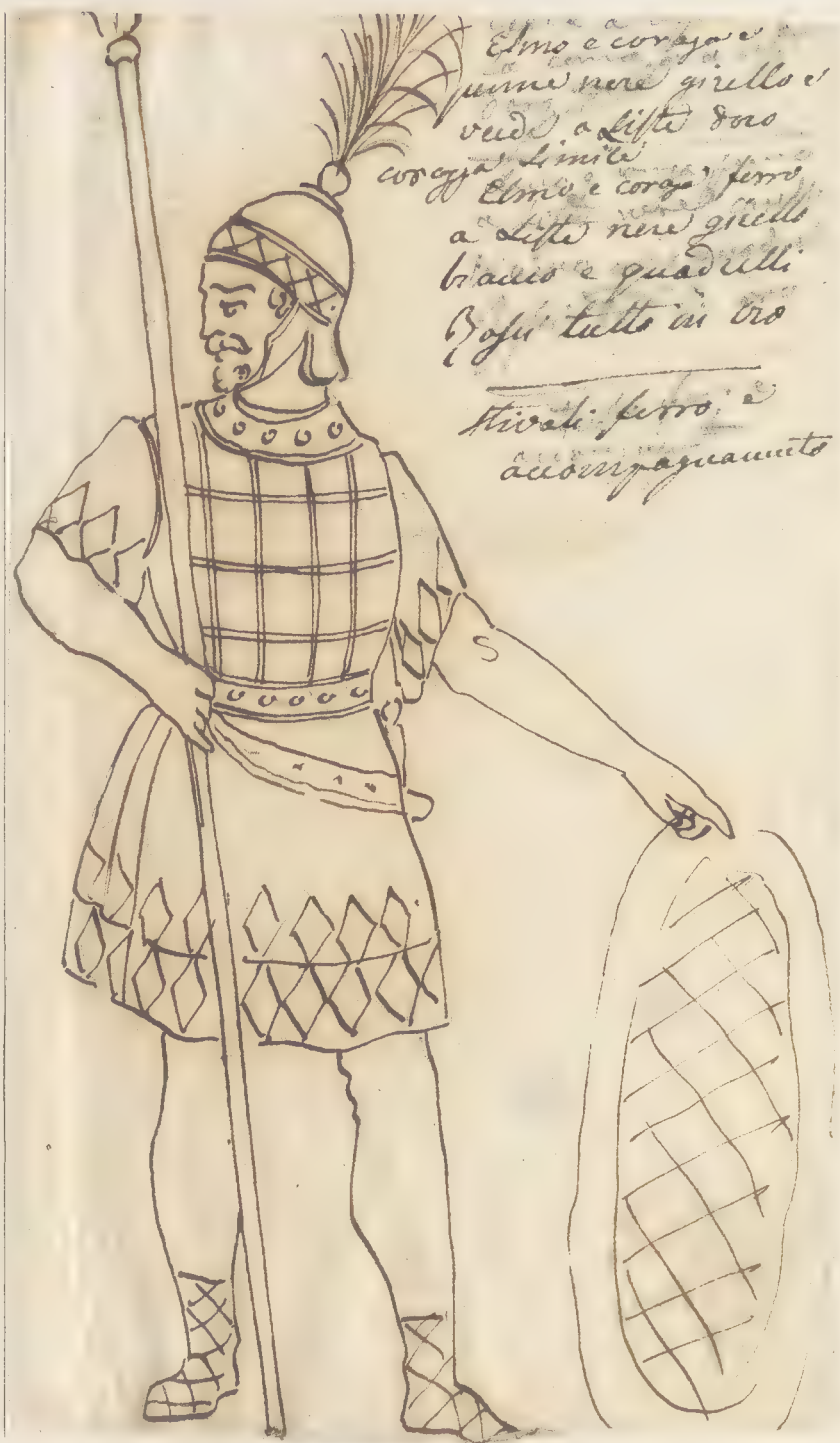 Elmo e coraza e
piume nere girello e
verde a Liste doro
corazza simile
Elmo e coraza ferro
a Liste nere girello
bracio e quadrelli
Rossi tutto in oro
Stivali ferro e
accompagnamento
S